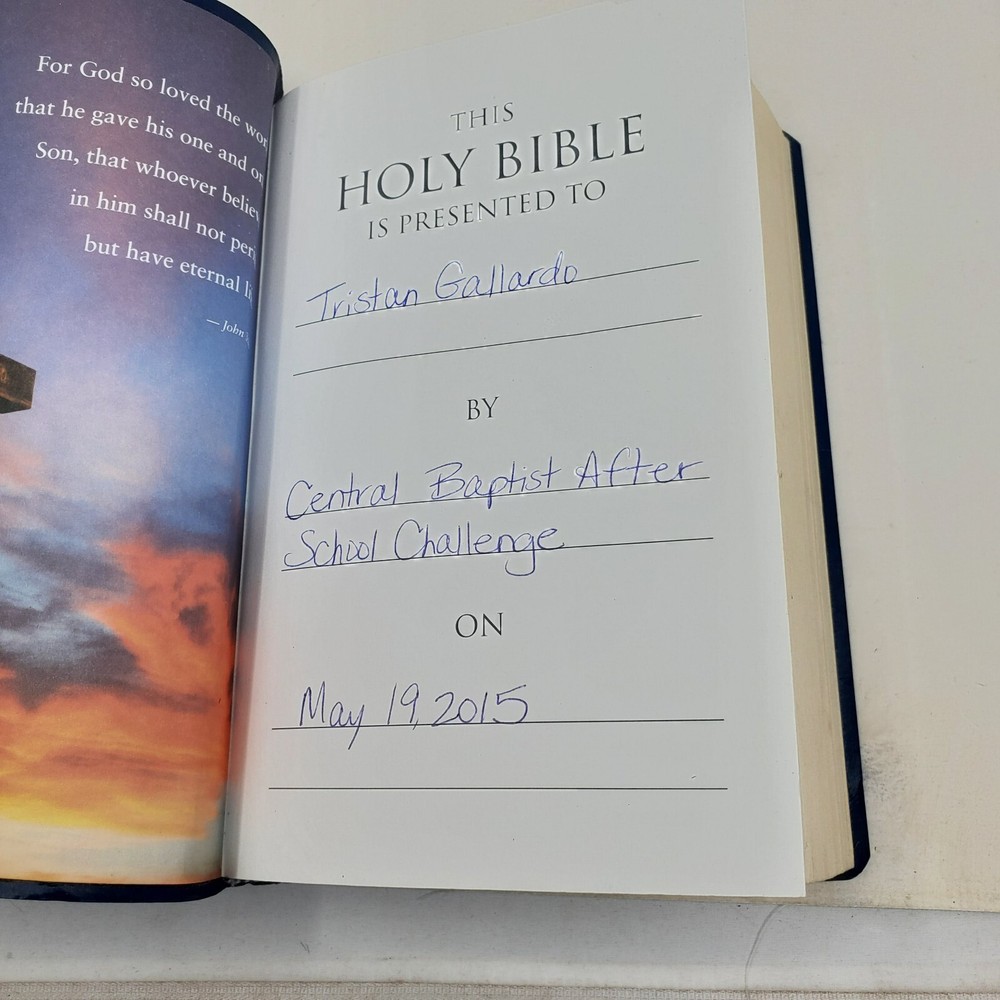 For God so loved the wor
that he gave his one and on
Son, that whoever believ
in him shall not peri
but have eternal li
— John
THIS
HOLY BIBLE
IS PRESENTED TO
Tristan Gallardo
BY
Central Baptist After
School Challenge
ON
May 19, 2015